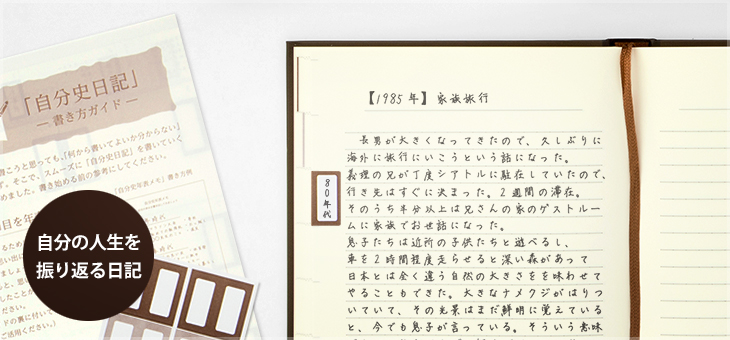 「自分史日記」
― 書き方ガイド ―
書こうと思っても、「何から書いてよいか分からない」
そこで、スムーズに「自分史日記」を書いていく
めました。書き始める前の参考にしてください。
「自分史年表メモ」書き方例
自分の人生を
振り返る日記
ご活用ください)
80年代
【1985年】 家族旅行
長男が大きくなってきたので、久しぶりに
海外に旅行にいこうという話になった。
義理の兄が丁度シアトルに駐在していたので、
行き先はすぐに決まった。2週間の滞在。
そのうち半分以上は兄さんの家のゲストルー
ムに家族でお世話になった。
息子たちは近所の子供たちと遊べるし、
車を2時間程度走らせると深い森があって
日本とは全く違う自然の大きさをを味わせて
やることもできた。大きなナメクジがはりつ
いていて、その光景はまだ鮮明に覚えている
と、今でも息子が言っている。そういう意味